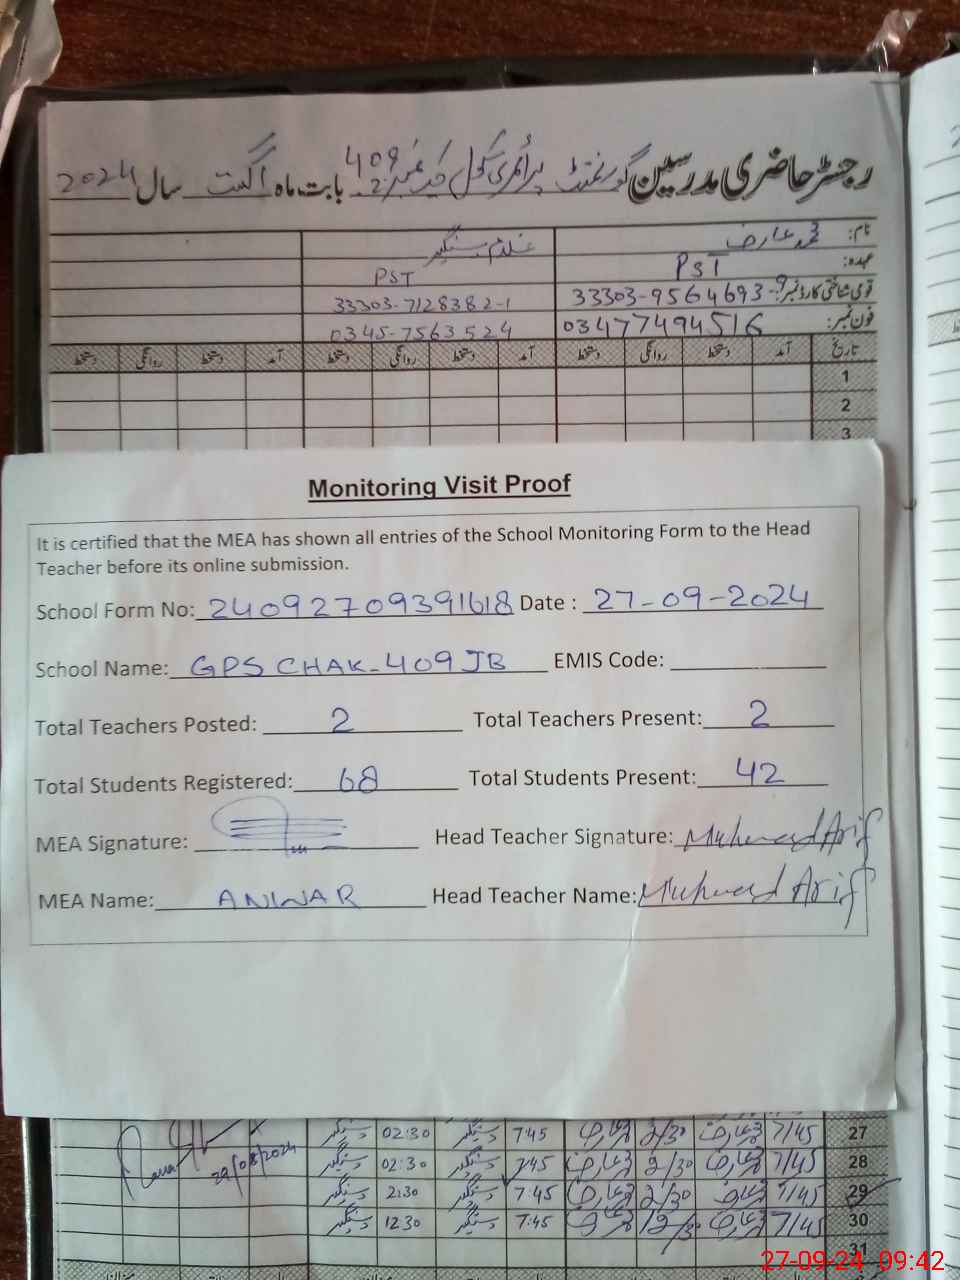 رجسٹر حاضری مدرسین گورنمنٹ پرائمری سکول چک نمبر 409 ج ب بابت ماہ اگست سال 2024
نام: محمد عارف غلام دستگیر
عہدہ: PST PST
قومی شناختی کارڈ نمبر: 33303-9564693-9 33303-7128382-1
فون نمبر: 03477494516 0345-7563524
تاریخ آمد دستخط روانگی دستخط آمد دستخط روانگی دستخط آمد دستخط روانگی دستخط
1
2
3
Monitoring Visit Proof
It is certified that the MEA has shown all entries of the School Monitoring Form to the Head
Teacher before its online submission.
School Form No: 24092709391618 Date : 27-09-2024
School Name: GPS CHAK-409 JB EMIS Code:
Total Teachers Posted: 2 Total Teachers Present: 2
Total Students Registered: 68 Total Students Present: 42
MEA Signature: Head Teacher Signature: Muhmmad Arif
MEA Name: ANWAR Head Teacher Name: Muhmmad Arif
27 7/45 عارف 2/30 عارف 7:45 دستگیر 02:30 دستگیر
28 7/45 عارف 2/30 عارف 7:45 دستگیر 02:30 دستگیر 29/08/2024
29 7/45 عارف 2/30 عارف 7:45 دستگیر 2:30 دستگیر
30 7/45 عارف عارف 7:45 دستگیر 12:30 دستگیر
31
27-09-24 09:42